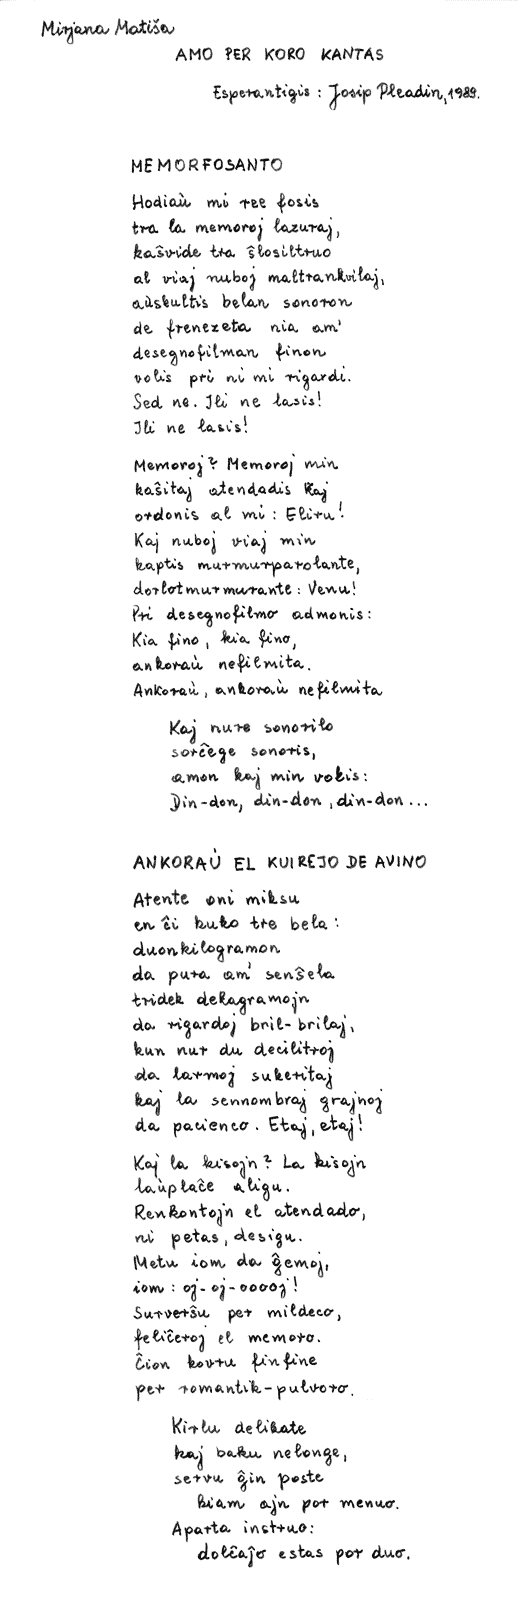 Mirjana Matiša
AMO PER KORO KANTAS
Esperantigis : Josip Pleadin, 1989.
MEMORFOSANTO
Hodiaŭ mi ree fosis
tra la memoroj lazuraj,
kaŝvide tra ŝlosiltruo
al viaj nuboj maltrankvilaj,
aŭskultis belan sonoron
de frenezeta nia am'
desegnofilman finon
volis pri ni mi rigardi.
Sed ne. Ili ne lasis!
Ili ne lasis!
Memoroj? Memoroj min
kaŝitaj atendadis kaj
ordonis al mi : Eliru!
Kaj nuboj viaj min
kaptis murmurparolante,
dorlotmurmurante : Venu!
Pri desegnofilmo admonis:
Kia fino, kia fino,
ankoraŭ nefilmita.
Ankoraŭ, ankoraŭ nefilmita
Kaj nure sonorilo
sorĉege sonoris,
amon kaj min vokis:
Din-don, din-don, din-don...
ANKORAŬ EL KUIREJO DE AVINO
Atente oni miksu
en ĉi kuko tre bela :
duonkilogramon
da pura am' senŝela
tridek dekagramojn
da rigardoj bril-brilaj,
kun nur du decilitroj
da larmoj sukeritaj
kaj la sennombraj grajnoj
da pacienco. Etaj, etaj!
Kaj la kisojn? La kisojn
laŭplaĉe aligu.
Renkontojn el atendado,
ni petas, desigu.
Metu iom da ĝemoj,
iom : oj-oj-ooooj!
Surverŝu per mildeco,
feliĉeroj el memoro.
Ĉion kovru finfine
per romantik-pulvoro.
Kirlu delikate
kaj baku nelonge,
servu ĝin poste
kiam ajn por menuo.
Aparta instruo:
dolĉaĵo estas por duo.